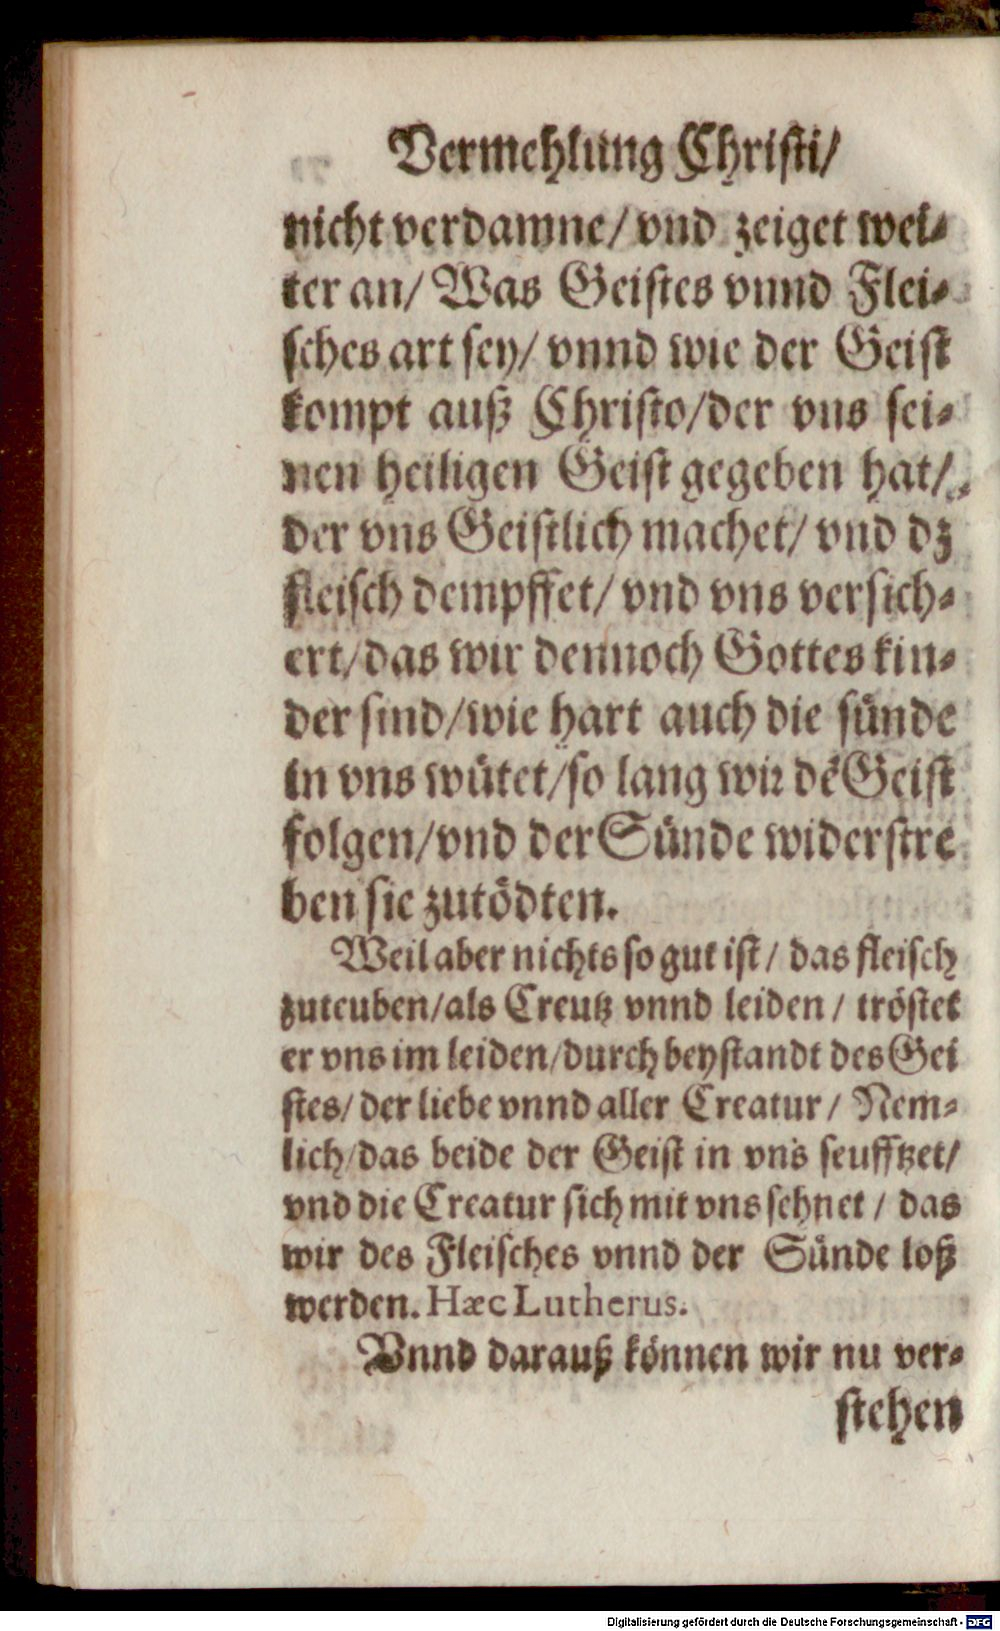 Vermehlung Christi/
nicht verdamne/ vnd zeiget wei-
ter an/ Was Geistes vnnd Flei-
sches art sey/ vnnd wie der Geist
kompt auß Christo/der vns sei-
nen heiligen Geist gegeben hat/
der vns Geistlich machet/ vnd dz
fleisch dempffet/ vnd vns versich-
ert/das wir dennoch Gottes kin-
der sind/wie hart auch die sünde
in vns wütet/so lang wir dẽ Geist
folgen/vnd der Sünde widerstre
ben sie zutödten.
Weil aber nichts so gut ist/ das fleisch
zuteuben/als Creutz vnnd leiden/ tröstet
er vns im leiden/durch beystandt des Gei
stes/ der liebe vnnd aller Creatur/ Nem-
lich/das beide der Geist in vns seufftzet/
vnd die Creatur sich mit vns sehnet/ das
wir des Fleisches vnnd der Sünde loß
werden. Hæc Lutherus.
Vnnd darauß können wir nu ver-
stehen
Digitalisierung gefördert durch die Deutsche Forschungsgemeinschaft - DFG